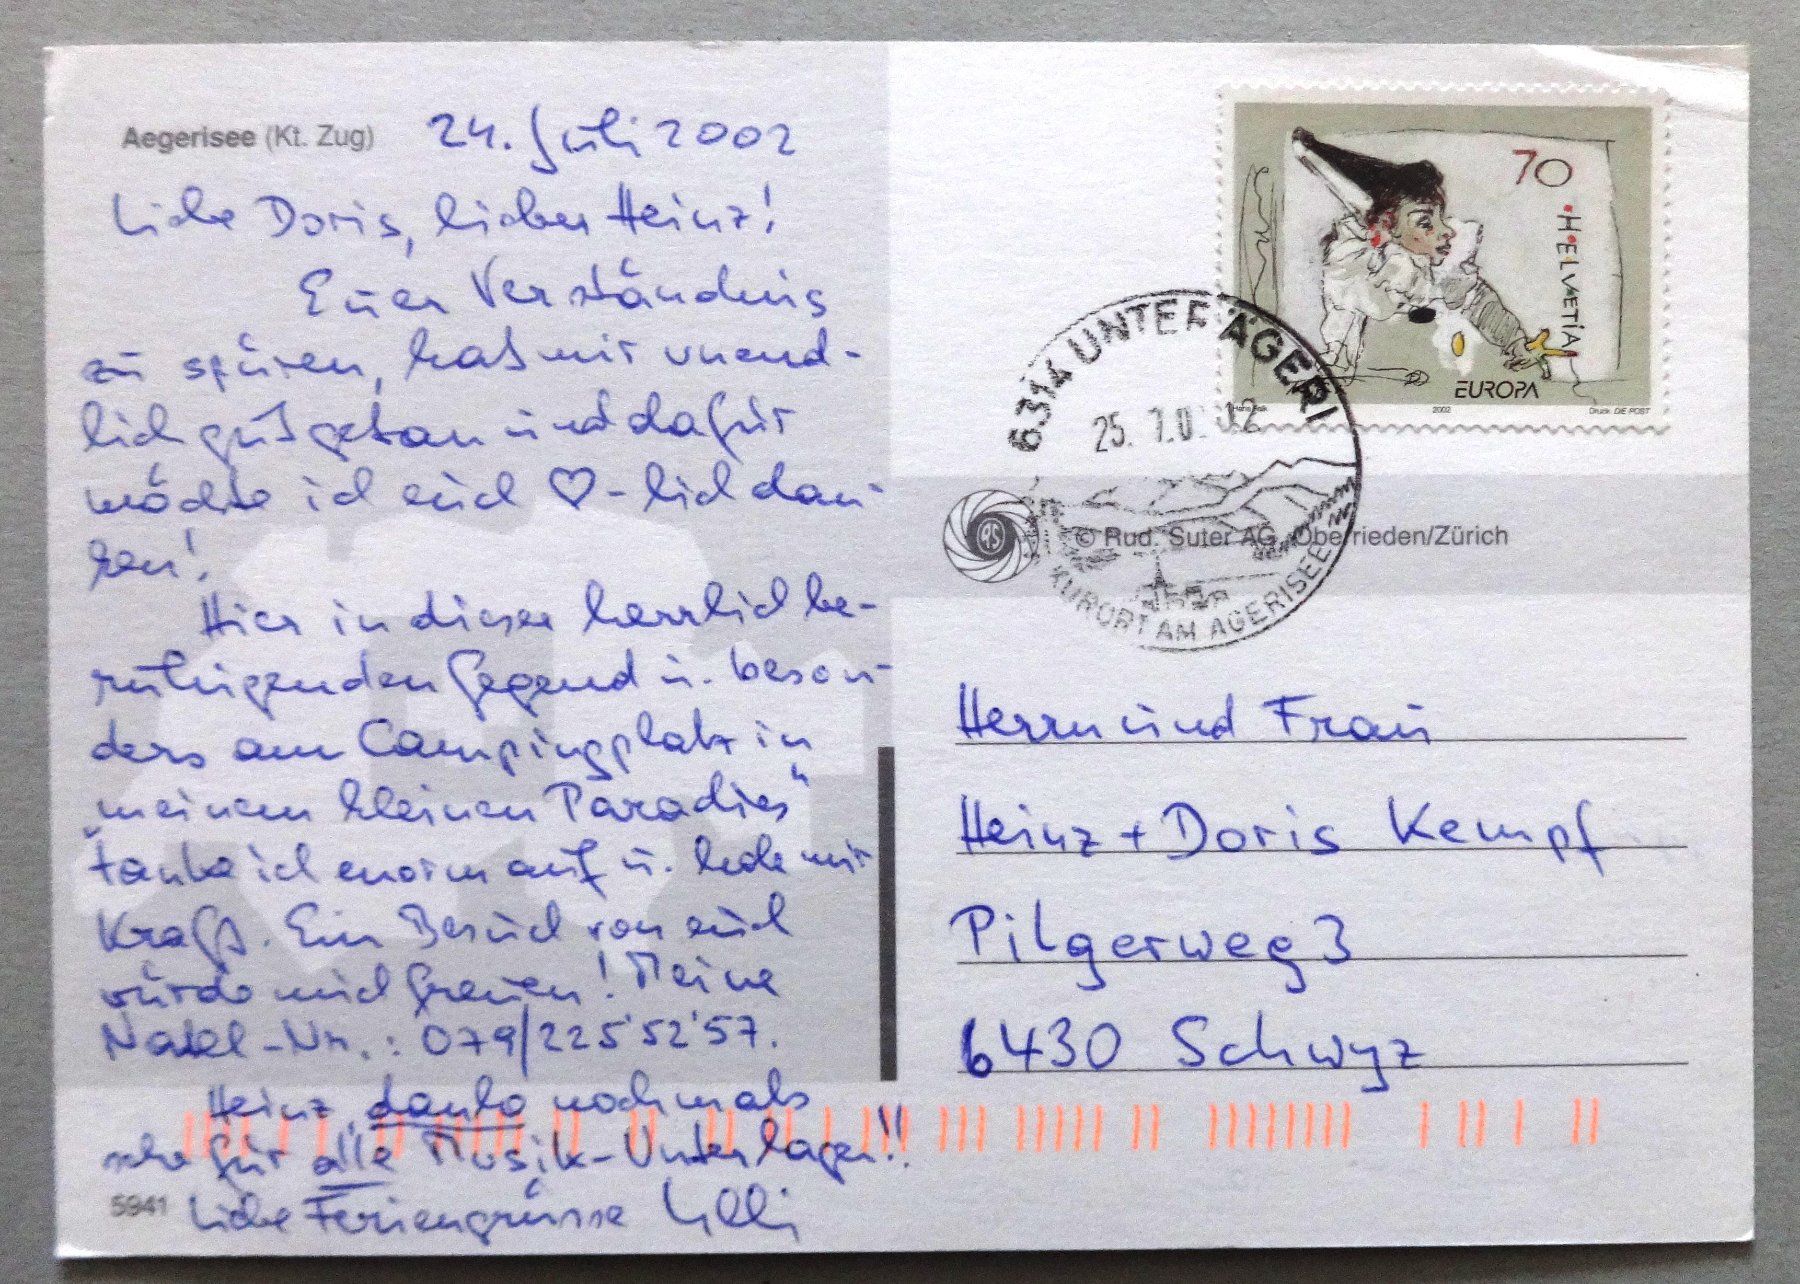 Aegerisee (Kt. Zug) 24. Juli 2002
Liebe Doris, lieber Heinz!
Euer Verständnis
zu spüren, hat mir unend-
lich gut getan und dafür
möchte ich euch ♡-lich dan-
ken!
Hier in dieser herrlich be-
ruhigenden Gegend u. beson-
ders am Campingplatz in
"meinem kleinen Paradies"
tanke ich enorm auf u. hole mir
Kraft. Ein Besuch von euch
würde mich freuen! Meine
Natel-Nr.: 079/225'52'57.
Heinz, danke nochmals
sehr für alle Musik-Unterlagen!!
5941 Liebe Feriengrüsse
70
HELVETIA
EUROPA
Hans Falk 2002 Druck: DIE POST
6314 UNTERÄGERI
25. 7.0 02
KURORT AM AGERISEE
© Rud. Suter AG, Oberrieden/Zürich
Herrn und Frau
Heinz + Doris Kempf
Pilgerweg 3
6430 Schwyz